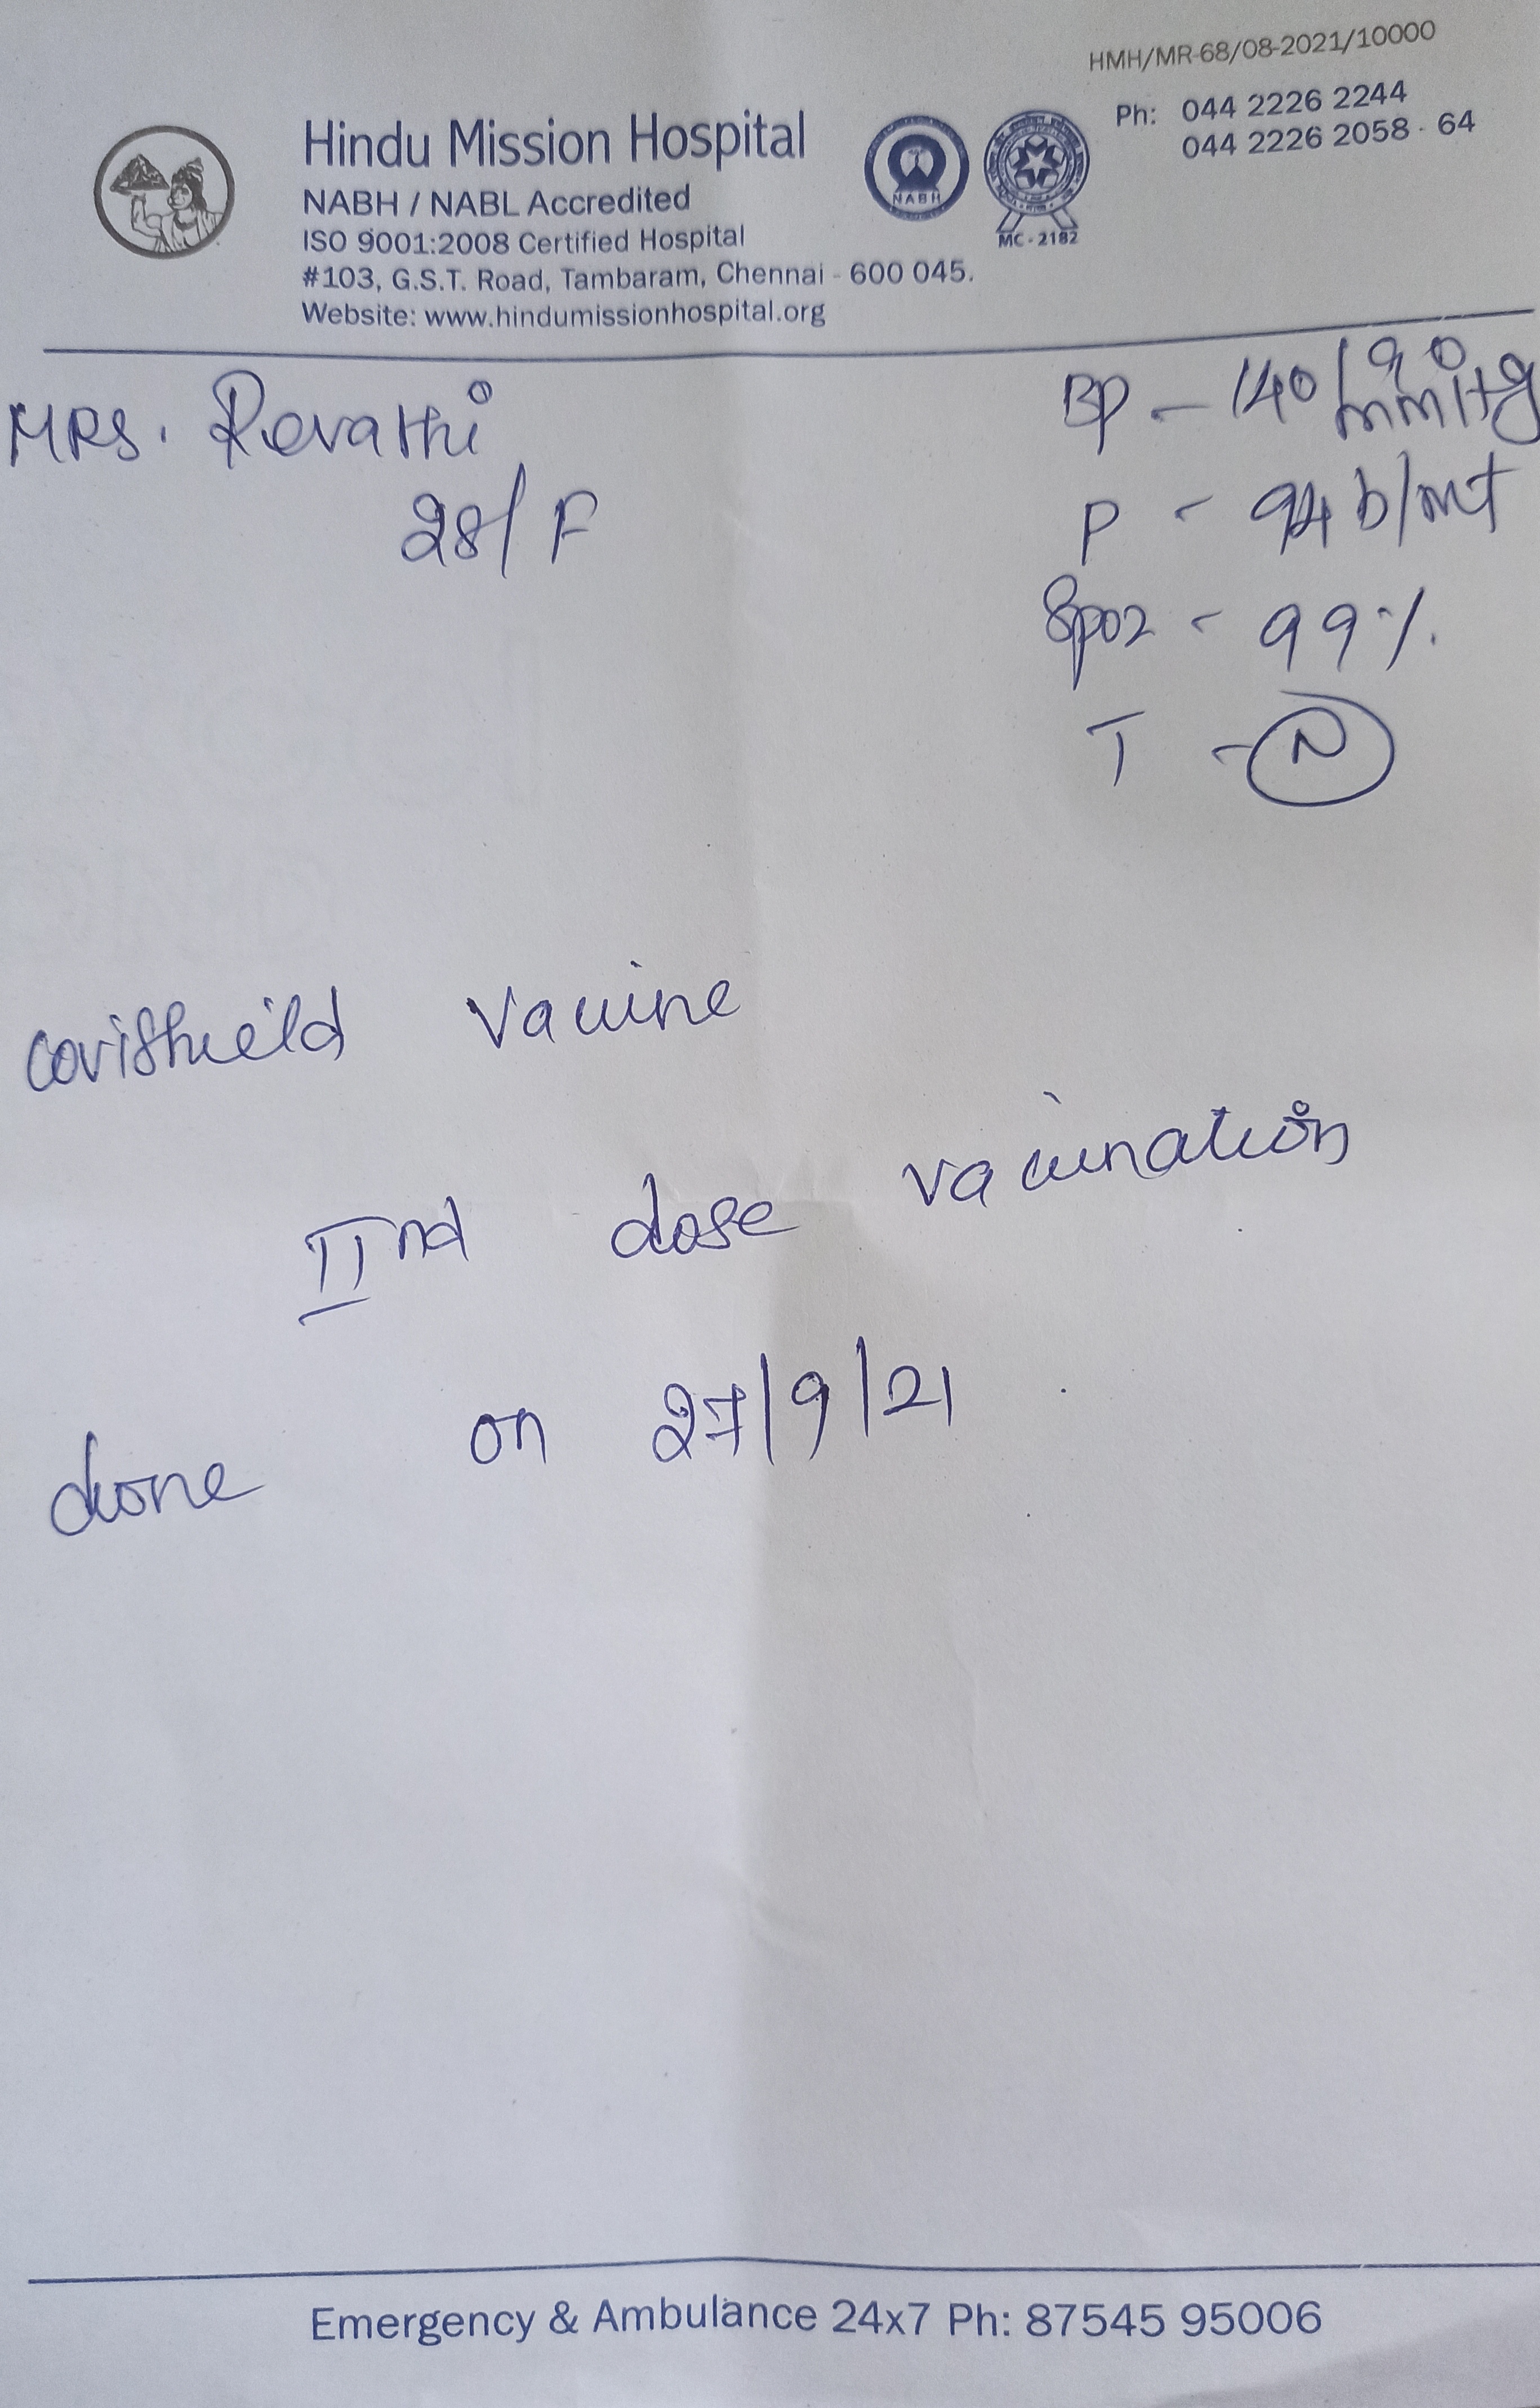 HMH/MR-68/08-2021/10000
Ph: 044 2226 2244
044 2226 2058 - 64
Hindu Mission Hospital
NABH / NABL Accredited
ISO 9001:2008 Certified Hospital
#103, G.S.T. Road, Tambaram, Chennai - 600 045.
Website: www.hindumissionhospital.org
NABH
MC - 2182
MRS. Revathi
28/F
BP - 140/90 mmHg
P - 94 b/mt
SpO2 - 99%.
T - N
covishield vaccine
IInd dose vaccination
done on 27/9/21
Emergency & Ambulance 24x7 Ph: 87545 95006